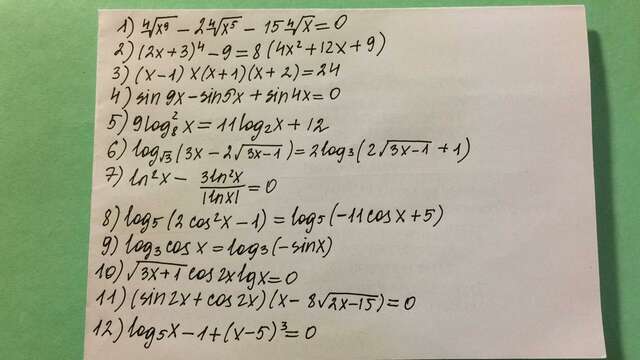 1) ∜x⁹ − 2∜x⁵ − 15∜x = 0
2) (2x+3)⁴ − 9 = 8(4x² + 12x + 9)
3) (x−1) x(x+1)(x+2) = 24
4) sin 9x − sin 5x + sin 4x = 0
5) 9log₈²x = 11log₂x + 12
6) log_√3 (3x − 2√(3x−1)) = 2log₃(2√(3x−1) + 1)
7) ln²x − 3ln²x/|lnx| = 0
8) log₅(2cos²x − 1) = log₅(−11cosx + 5)
9) log₃cosx = log₃(−sinx)
10) √(3x+1) cos2x lgx = 0
11) (sin2x + cos2x)(x − 8√(2x−15)) = 0
12) log₅x − 1 + (x−5)³ = 0